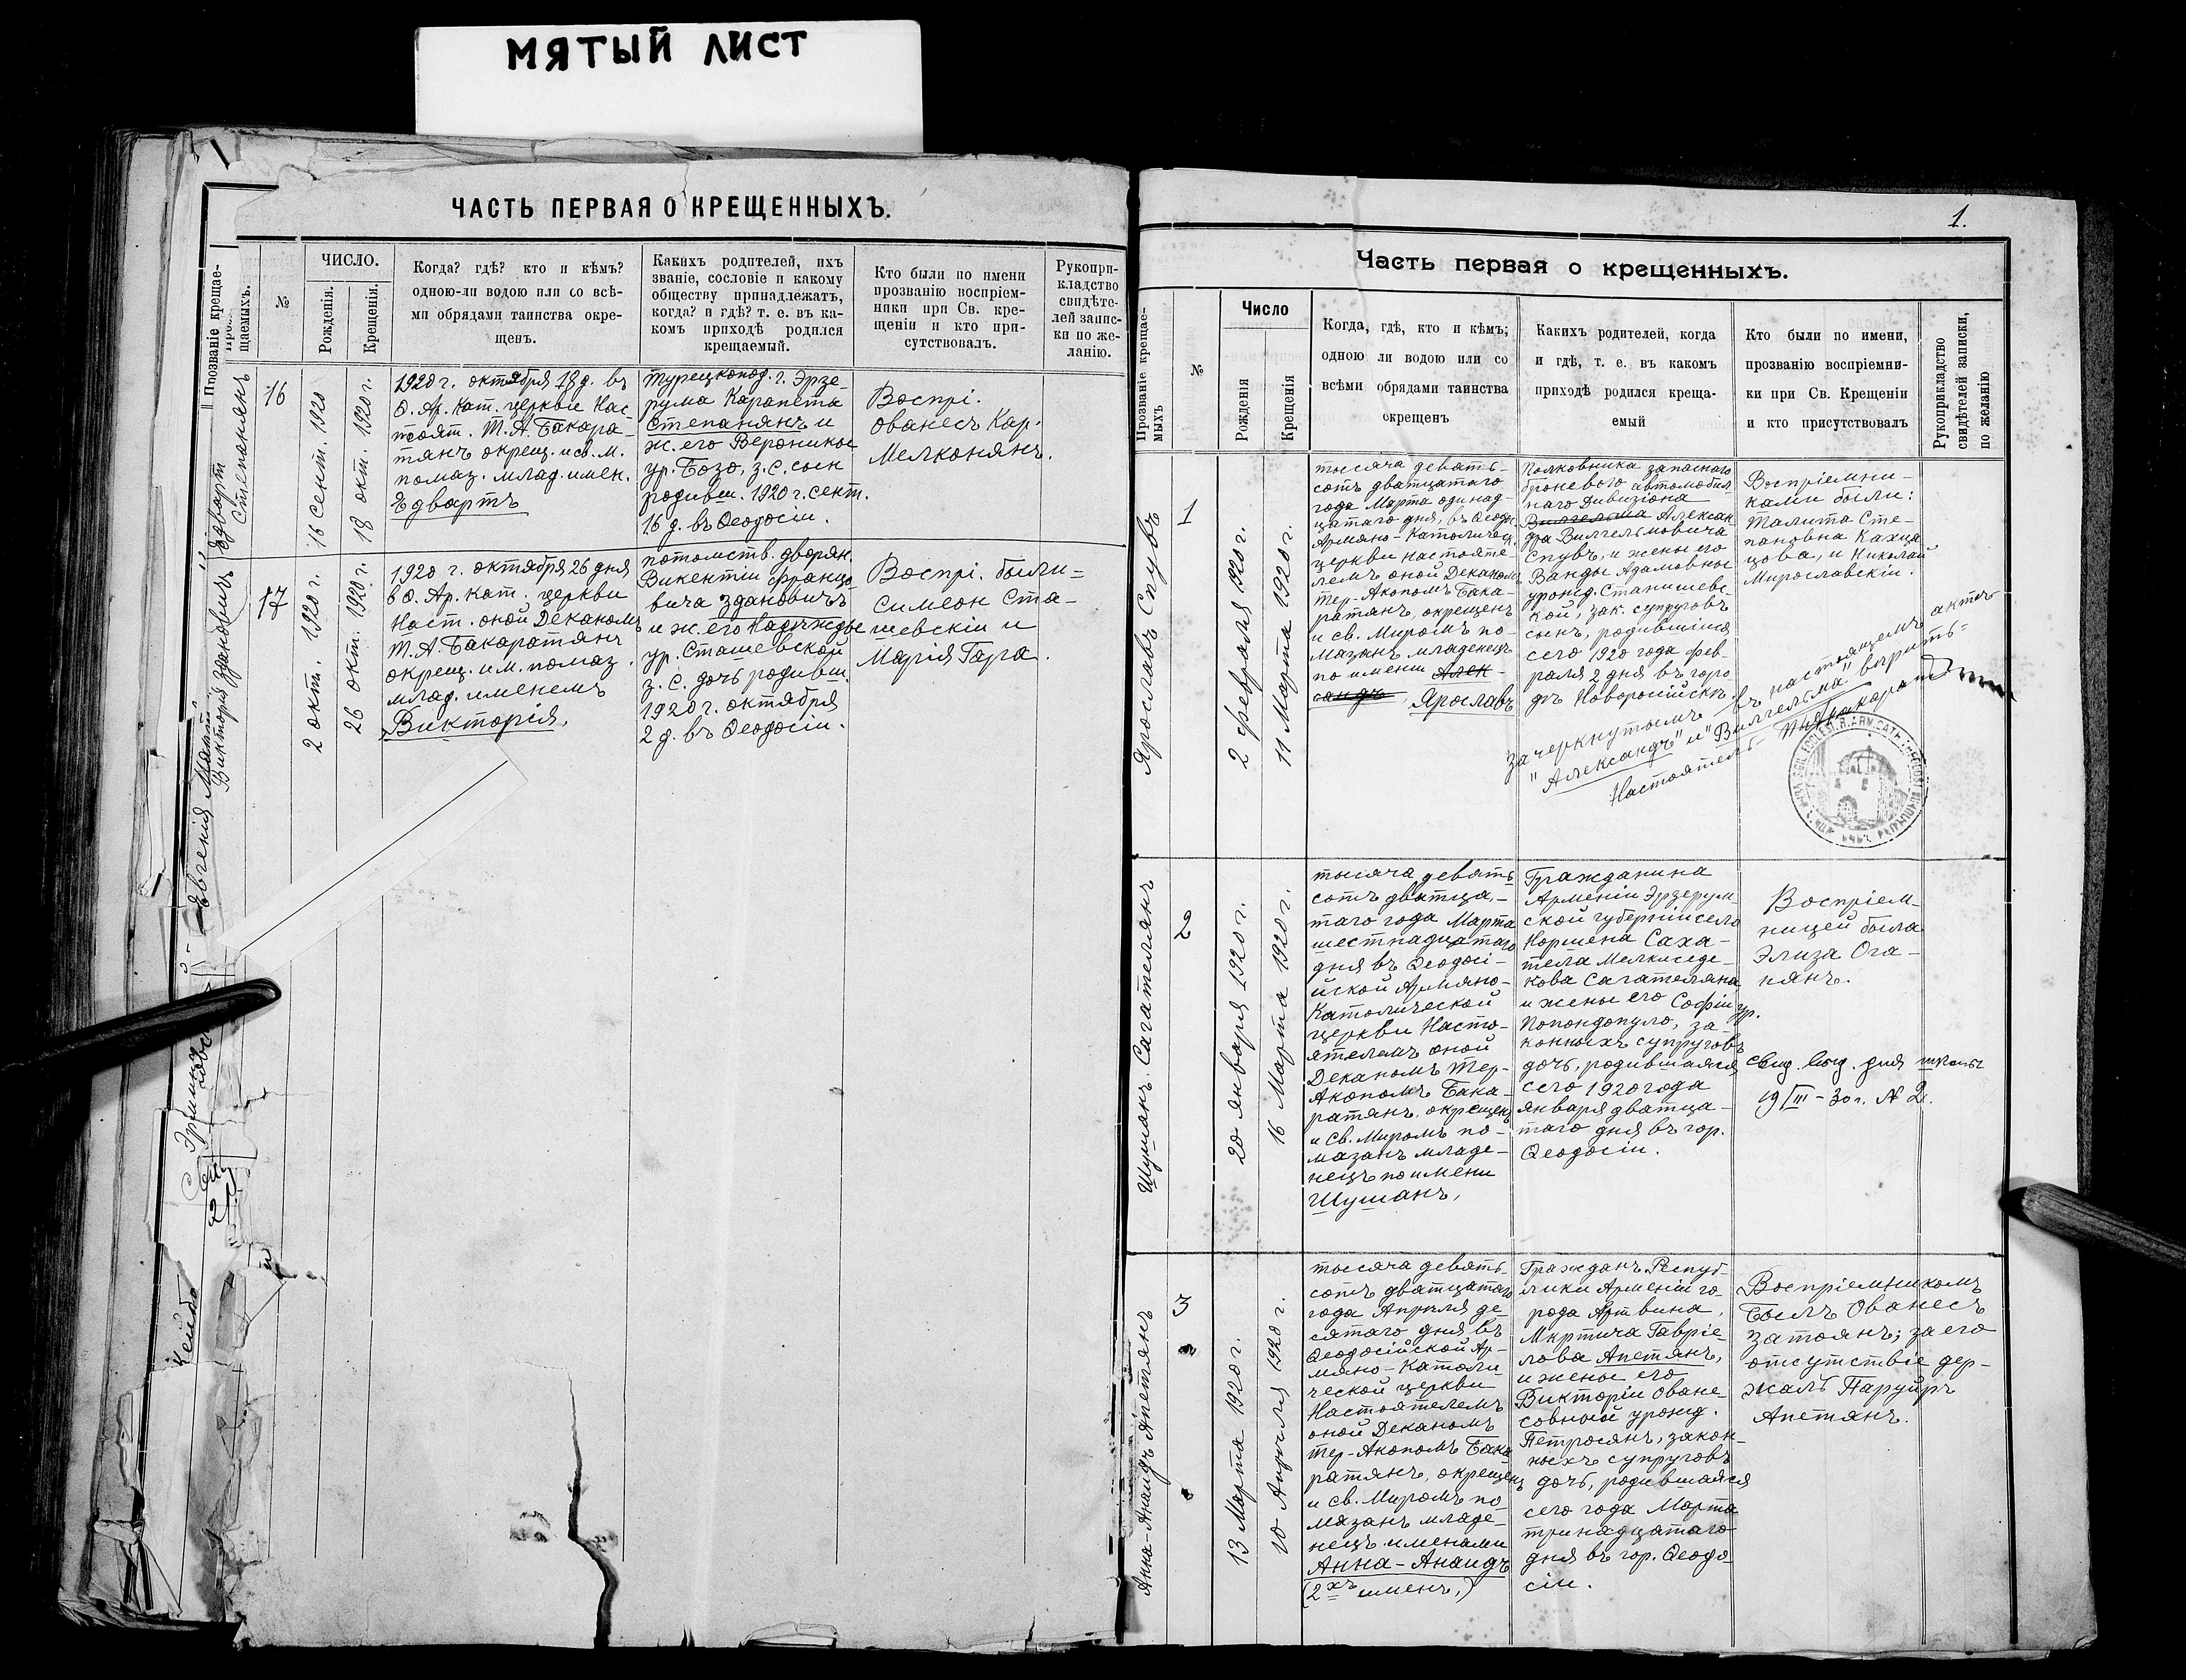 МЯТЫЙ ЛИСТ
ЧАСТЬ ПЕРВАЯ О КРЕЩЕННЫХЪ.
Прозваніе крещае-
щаемыхъ.
№
ЧИСЛО.
Рожденія.
Крещенія.
Когда? гдѣ? кто и кѣмъ?
одною-ли водою или со всѣ-
ми обрядами таинства окре-
щенъ.
Какихъ родителей, ихъ
званіе, сословіе и какому
обществу принадлежатъ,
когда? и гдѣ? т. е. въ ка-
комъ приходѣ родился
крещаемый.
Кто были по имени
прозванію воспріем-
ники при Св. кре-
щеніи и кто при-
сутствовалъ.
Рукопри-
кладство
свидѣте-
лей запис-
ки по же-
ланію.
Эдвартъ
Степанянъ
16
16 сент. 1920
18 окт. 1920 г.
1920 г. октября 18 д. въ
Ѳ. Ар. Кат. церкви Нас
тоят. Т. А. Бакара-
тянъ окрещ. и св. М.
помаз. млад. имен.
Эдвартъ
турецкопод. г. Эрзе-
рума Карапета
Степанянъ и
ж. его Вероники
ур. Бозо, з. с. сын
родивш. 1920 г. сент.
16 д. въ Ѳеодосіи.
Воспрі.
Ованесъ Кар.
Мелконянъ.
Викторія Здановичъ
17
2 окт. 1920 г.
26 окт. 1920 г.
1920 г. октября 26 дня
в Ѳ. Ар. Кат. церкви
Наст. оной Деканомъ
Т. А. Бакаратянъ
окрещ. и М. помаз.
млад. именемъ
Викторія.
потомств. дворян.
Викентіи Францо
вича Здановичъ
и ж. его Надежды
ур. Сташевской
з. с. дочь родивш.
1920 г. октября
2 д. въ Ѳеодосіи.
Воспрі. были-
Симеон Ста-
шевскіи и
Марія Гара.
Евгенія
Кейбо
1.
Часть первая о крещенныхъ.
Прозваніе крещае-
мыхъ
№
Число
Рожденія
Крещенія
Когда, гдѣ, кто и кѣмъ;
одною ли водою или со
всѣми обрядами таинства
окрещенъ
Какихъ родителей, когда
и гдѣ, т. е. въ какомъ
приходѣ родился креща-
емый
Кто были по имени,
прозванію воспріемни-
ки при Св. Крещеніи
и кто присутствовалъ
Рукоприкладство
свидѣтелей записки,
по желанію
Ярославъ Спувъ
1
2 февраля 1920 г.
11 Марта 1920 г.
тысяча девять-
сотъ двадцатаго
года Марта одинад-
цатаго дня, въ Ѳеодос.
Армяно-Католичес.
церкви Настояте-
лемъ оной Деканомъ
Тер-Акопомъ Бака-
ратянъ, окрещенъ
и св. Миромъ по-
мазанъ младенецъ
по имени Алек-
сандъ, Ярославъ
Полковника запаснаго
броневого автомобил-
наго Дивизіона
Вилгельма Алексан
дра Вилгелмовича
Спувъ, и жены его
Ванды Адамовны
урожд. Станишевс
кой, зак. супруговъ
сынъ, родившійся
сего 1920 года фев-
раля 2 дня въ горо
дѣ Новоросійскѣ.
Воспріемни-
ками были:
Талита Сте-
пановна Кахца
цова, и Николай
Мирославскіи.
Зачеркнутымъ въ настоящемъ актѣ
"Александъ" и "Вилгельма" вѣрить-
Настоятель- Т. Бакаратянъ
Шушанъ Сагателянъ
2
20 января 1920 г.
16 Марта 1920 г.
тысяча девять
сотъ двадца-
таго года Марта
шестнадцатаго
дня въ Ѳеодосі-
йской Армяно-
Католической
церкви Насто-
ятелемъ оной
Деканомъ Тер-
Акопомъ Бака-
ратянъ, окрещенъ
и Св. Миромъ по-
мазанъ младе-
нецъ по имени
Шушанъ,
Гражданина
Арменіи Эрзерум
ской губерніи село
Норшена Саха-
тела Мелкиседе-
кова Сагателяна
и жены его Софіи ур.
Попондопуло, за-
конныхъ супруговъ
дочь, родившаяся
сего 1920 года
января двадца-
таго дня въ гор.
Ѳеодосіи.
Воспріем-
ницей была
Элиза Ога-
нянъ.
Свид. выд. для школы
19/III-30 г. № 2.
Анна-Анаидъ Апетянъ
3
13 Марта 1920 г.
10 Апрѣля 1920 г.
тысяча девять-
сотъ двадцатаго
года Апрѣля де
сятаго дня въ
Ѳеодосійской Ар-
мяно-Католи
ческой церкви
Настоятелемъ
оной Деканомъ
Тер-Акопомъ Бака
ратянъ, окрещенъ
и св. Миромъ по
мазанъ младе-
нецъ именами
Анна-Анаидъ
(2хъ именъ,)
Гражданъ Респуб-
лики Арменіи го-
рода Артвина,
Мкртича Гавріе-
лова Апетянъ,
и жены его
Викторіи Ована-
совной урожд.
Петросянъ, закон-
ныхъ супруговъ
дочь, родившаяся
сего года Марта
тринадцатаго
дня въ гор. Ѳеодо
сіи.
Воспріемникомъ
былъ Ованесъ
Затоянъ; за его
отсутствіе дер-
жалъ Паруйръ
Апетянъ.